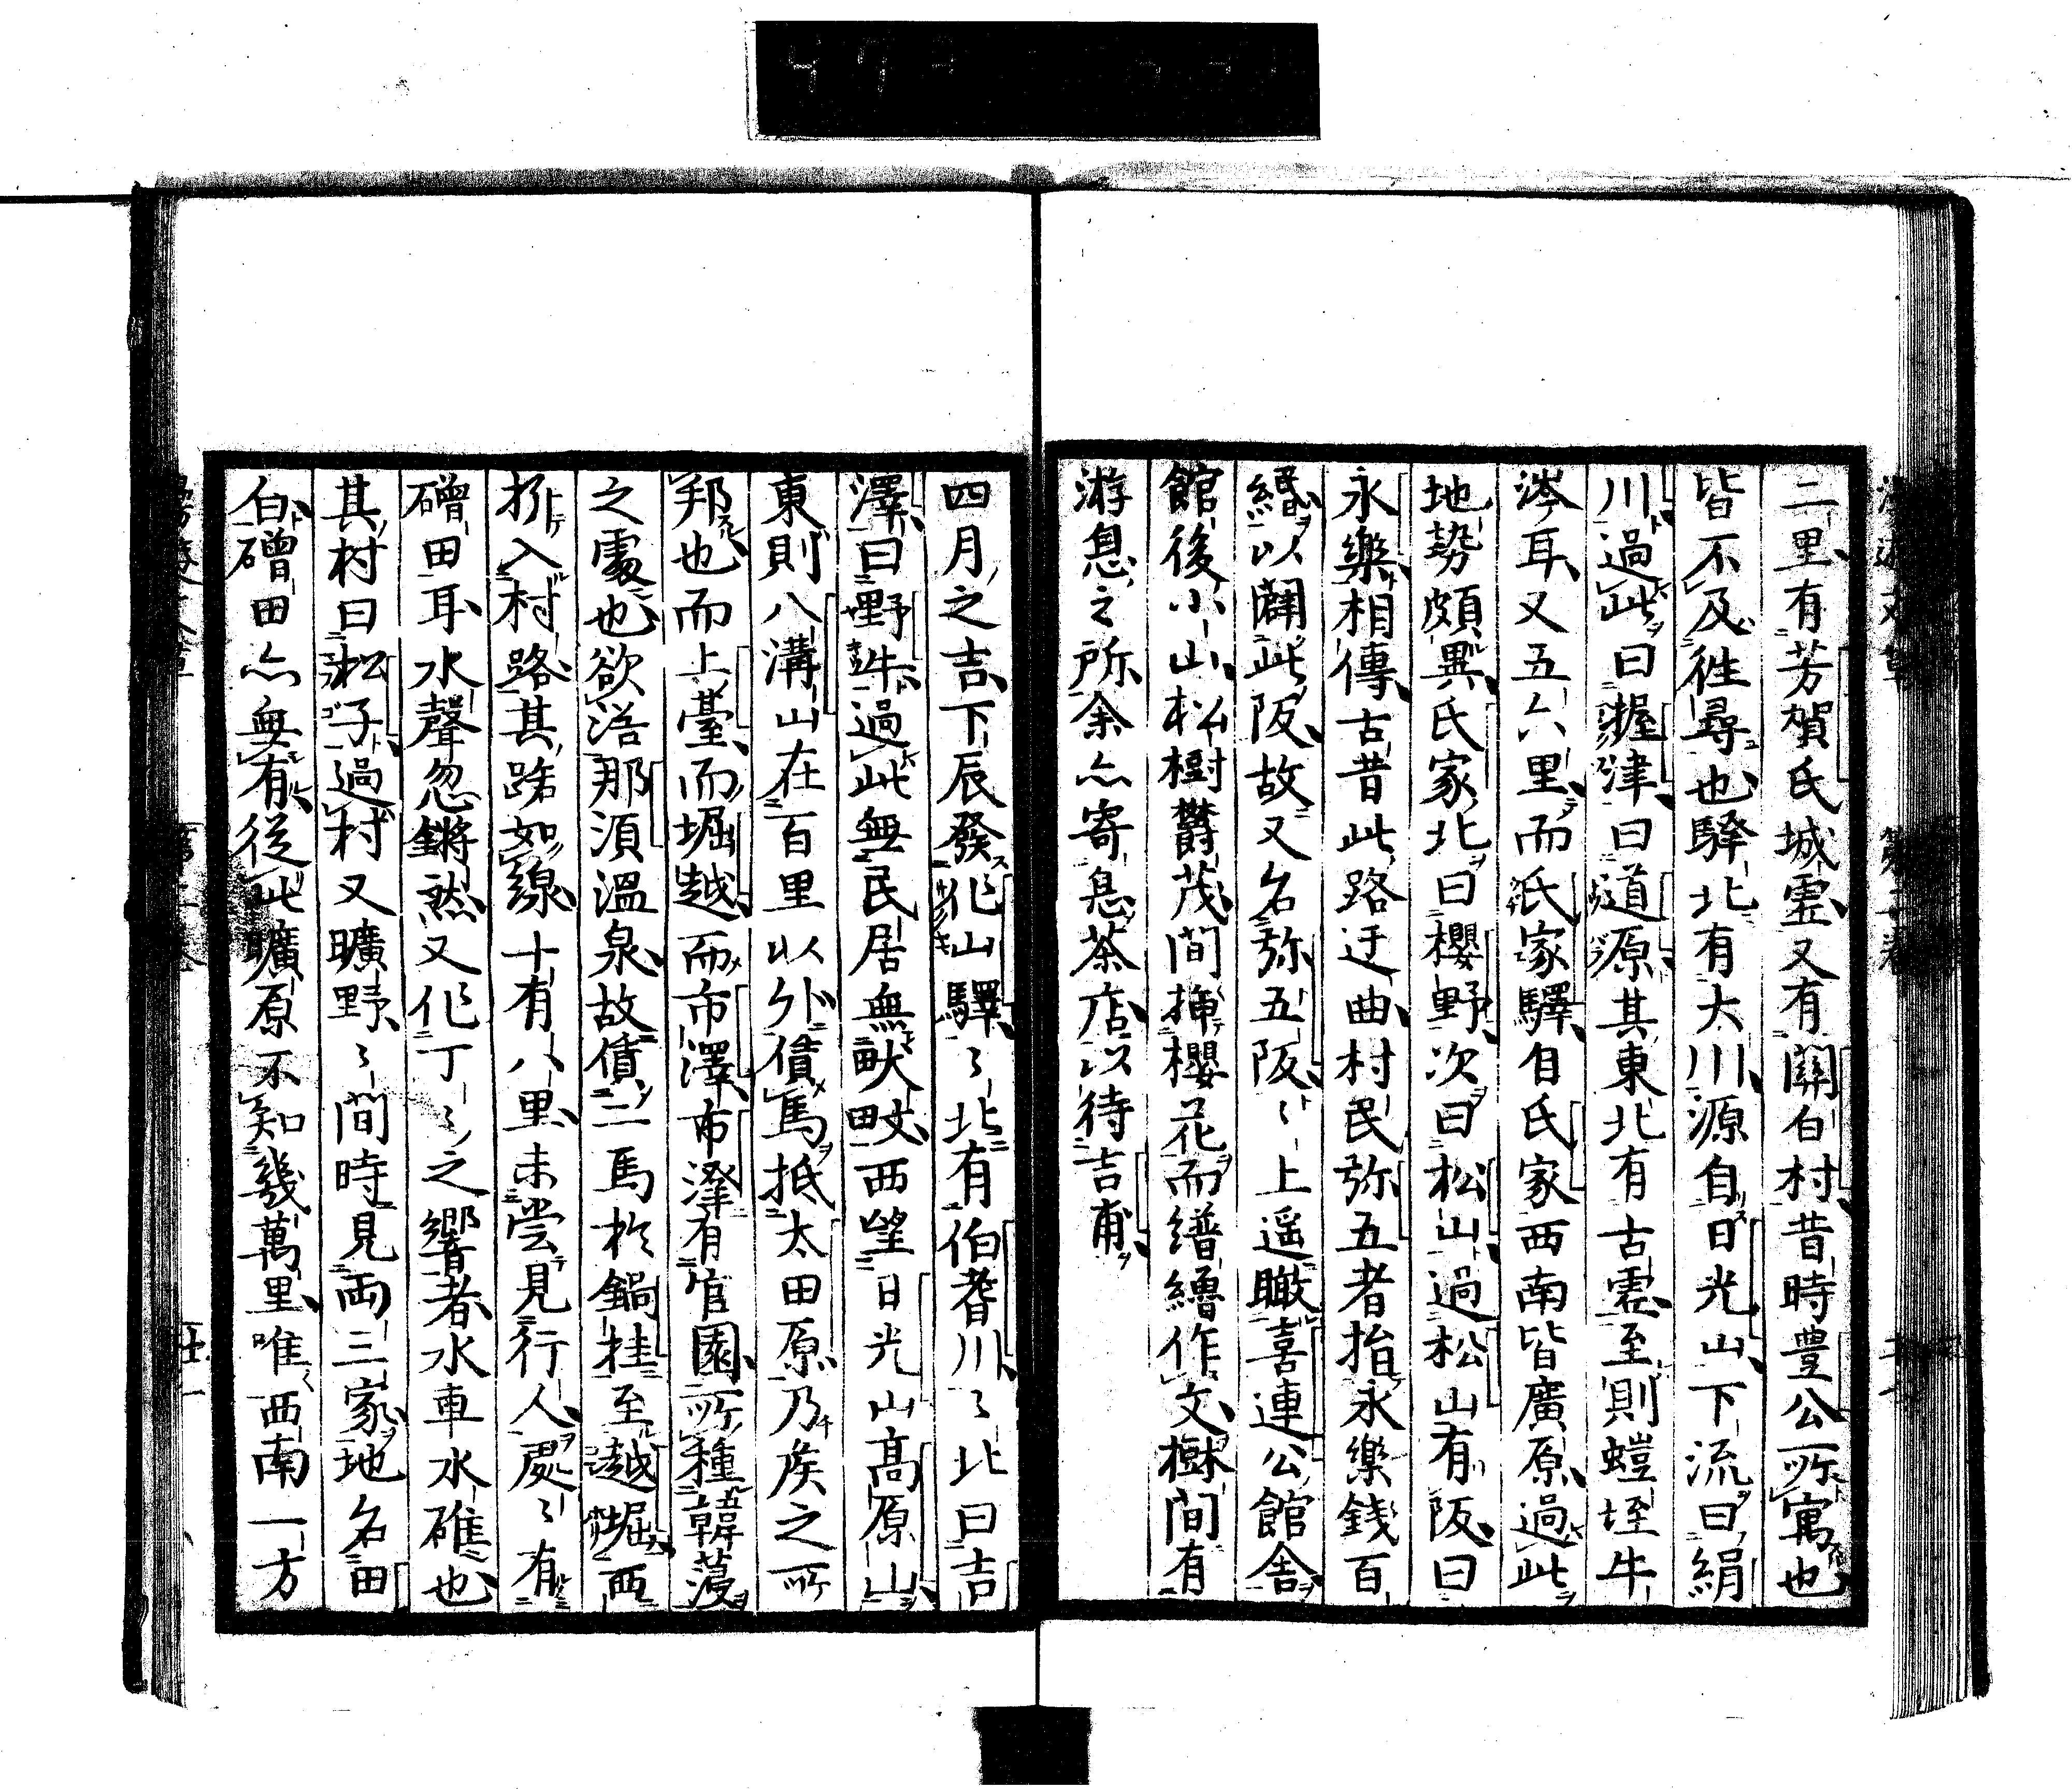 二里有芳賀氏城墟又有關白村昔時豊公所寓也
皆不及徃尋也驛北有大川源自日光山下流曰絹
川過此曰握津曰道原其東北有古墟至則螘垤牛
涔耳又五六里而氏家驛自氏家西南皆廣原過此
地勢頗異氏家北曰櫻野次曰松山過松山有阪曰
永樂相傳古昔此路迂曲村民弥五者捨永樂錢百
緡以闢此阪故又名弥五阪〻上遥瞰喜連公館舎
館後小山松樹欝茂間挿櫻花而繢繪作文樹間有
游息之所余亦寄息茶店以待吉甫
四月之吉下辰發作山驛〻北有伯耆川〻北曰吉
澤曰野𡋽過此無民居無畎畝西望日光山高原山
東則八溝山在百里以外債馬抵太田原乃侯之所
邦也而上臺而堀越而市澤市澤有官園所種韓蓡
之處也欲浴那須温泉故債二馬於鍋挂至越堀西
折入村路其路如線十有八里未嘗見行人處〻有
磳田耳水聲忽鏘然又作丁〻之響者水車水碓也
其村曰松子過村又曠野〻間時見両三家地名田
白磳田亦無有從此曠原不知幾萬里唯西南一方